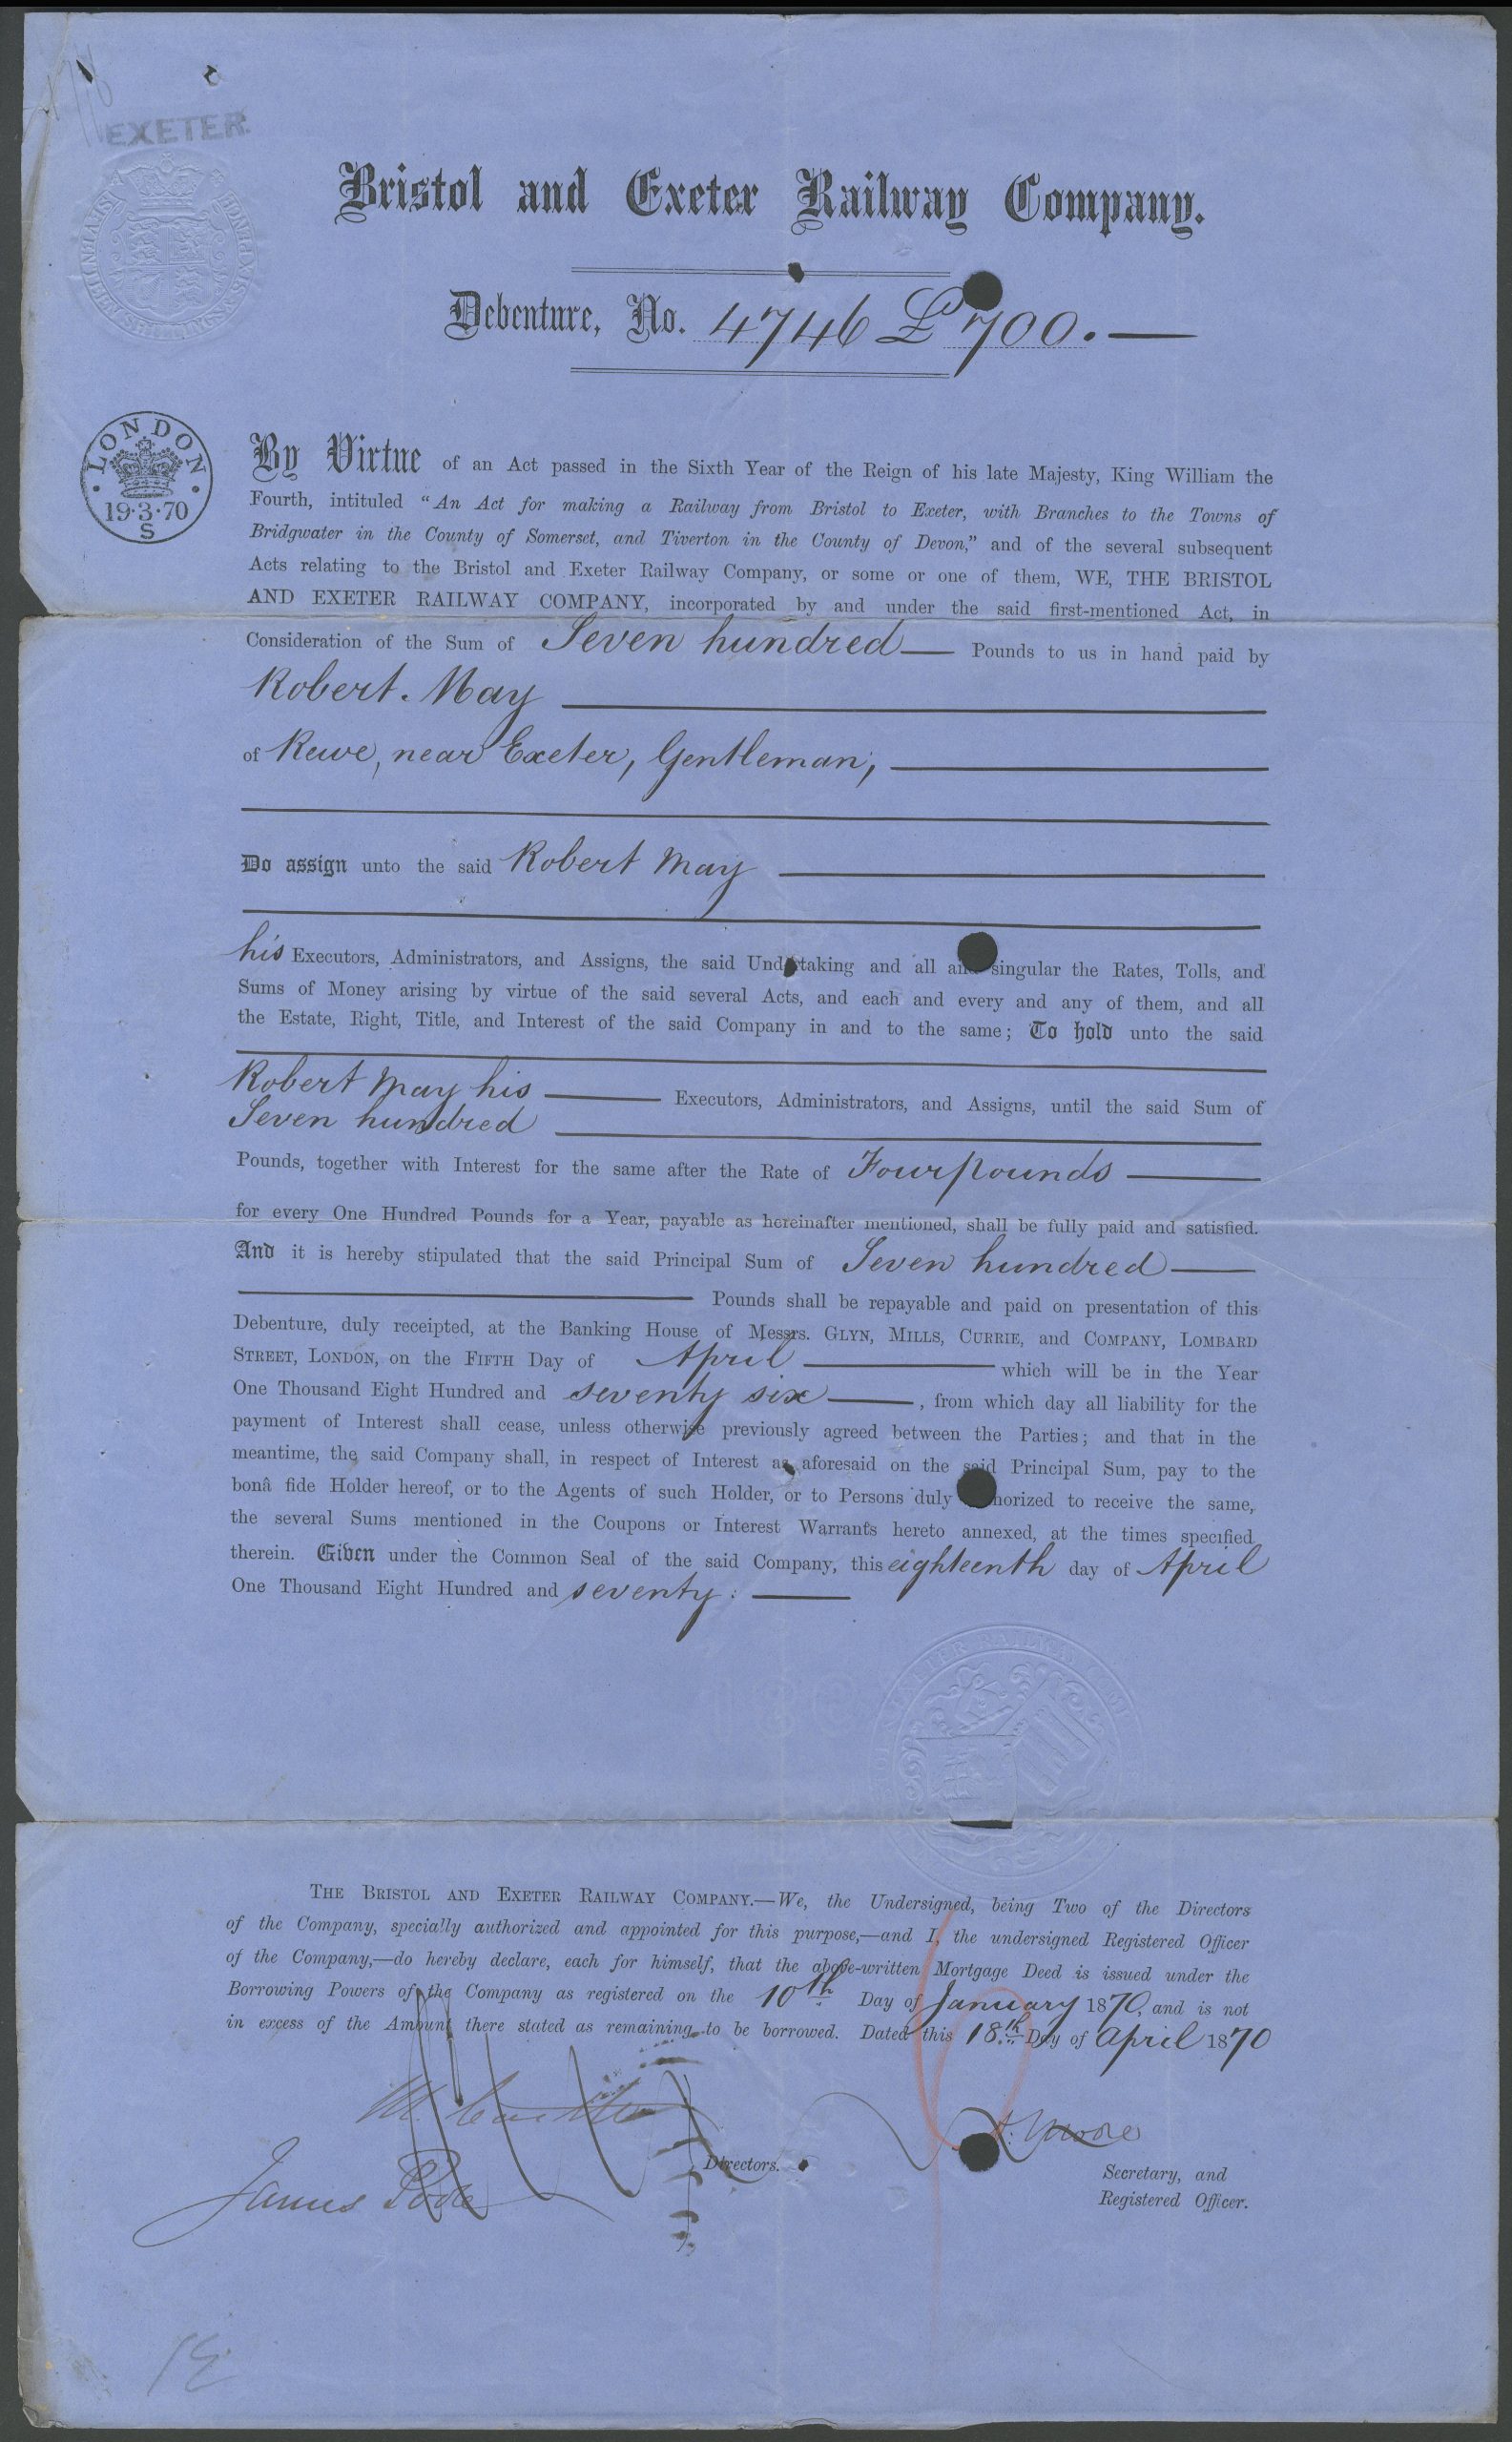 EXETER.
SEVENTEEN SHILLINGS & SIXPENCE
Bristol and Exeter Railway Company.
Debenture, No. 4746 £700.—
LONDON
19·3·70
S
By Virtue of an Act passed in the Sixth Year of the Reign of his late Majesty, King William the
Fourth, intituled “An Act for making a Railway from Bristol to Exeter, with Branches to the Towns of
Bridgwater in the County of Somerset, and Tiverton in the County of Devon,” and of the several subsequent
Acts relating to the Bristol and Exeter Railway Company, or some or one of them, WE, THE BRISTOL
AND EXETER RAILWAY COMPANY, incorporated by and under the said first-mentioned Act, in
Consideration of the Sum of Seven hundred— Pounds to us in hand paid by
Robert. May
of Rewe, near Exeter, Gentleman,
Do assign unto the said Robert May
his Executors, Administrators, and Assigns, the said Undertaking and all and singular the Rates, Tolls, and
Sums of Money arising by virtue of the said several Acts, and each and every and any of them, and all
the Estate, Right, Title, and Interest of the said Company in and to the same; To hold unto the said
Robert May his — Executors, Administrators, and Assigns, until the said Sum of
Seven hundred
Pounds, together with Interest for the same after the Rate of Four pounds
for every One Hundred Pounds for a Year, payable as hereinafter mentioned, shall be fully paid and satisfied.
And it is hereby stipulated that the said Principal Sum of Seven hundred—
Pounds shall be repayable and paid on presentation of this
Debenture, duly receipted, at the Banking House of Messrs. GLYN, MILLS, CURRIE, and COMPANY, LOMBARD
STREET, LONDON, on the FIFTH Day of April — which will be in the Year
One Thousand Eight Hundred and seventy six —, from which day all liability for the
payment of Interest shall cease, unless otherwise previously agreed between the Parties; and that in the
meantime, the said Company shall, in respect of Interest as aforesaid on the said Principal Sum, pay to the
bonâ fide Holder hereof, or to the Agents of such Holder, or to Persons duly authorized to receive the same,
the several Sums mentioned in the Coupons or Interest Warrants hereto annexed, at the times specified
therein. Given under the Common Seal of the said Company, this eighteenth day of April
One Thousand Eight Hundred and seventy: —
THE BRISTOL AND EXETER RAILWAY COMPANY.—We, the Undersigned, being Two of the Directors
of the Company, specially authorized and appointed for this purpose,—and I, the undersigned Registered Officer
of the Company,—do hereby declare, each for himself, that the above-written Mortgage Deed is issued under the
Borrowing Powers of the Company as registered on the 10th Day of January 1870, and is not
in excess of the Amount there stated as remaining to be borrowed. Dated this 18th Day of April 1870
Directors.
James
Secretary, and
Registered Officer.